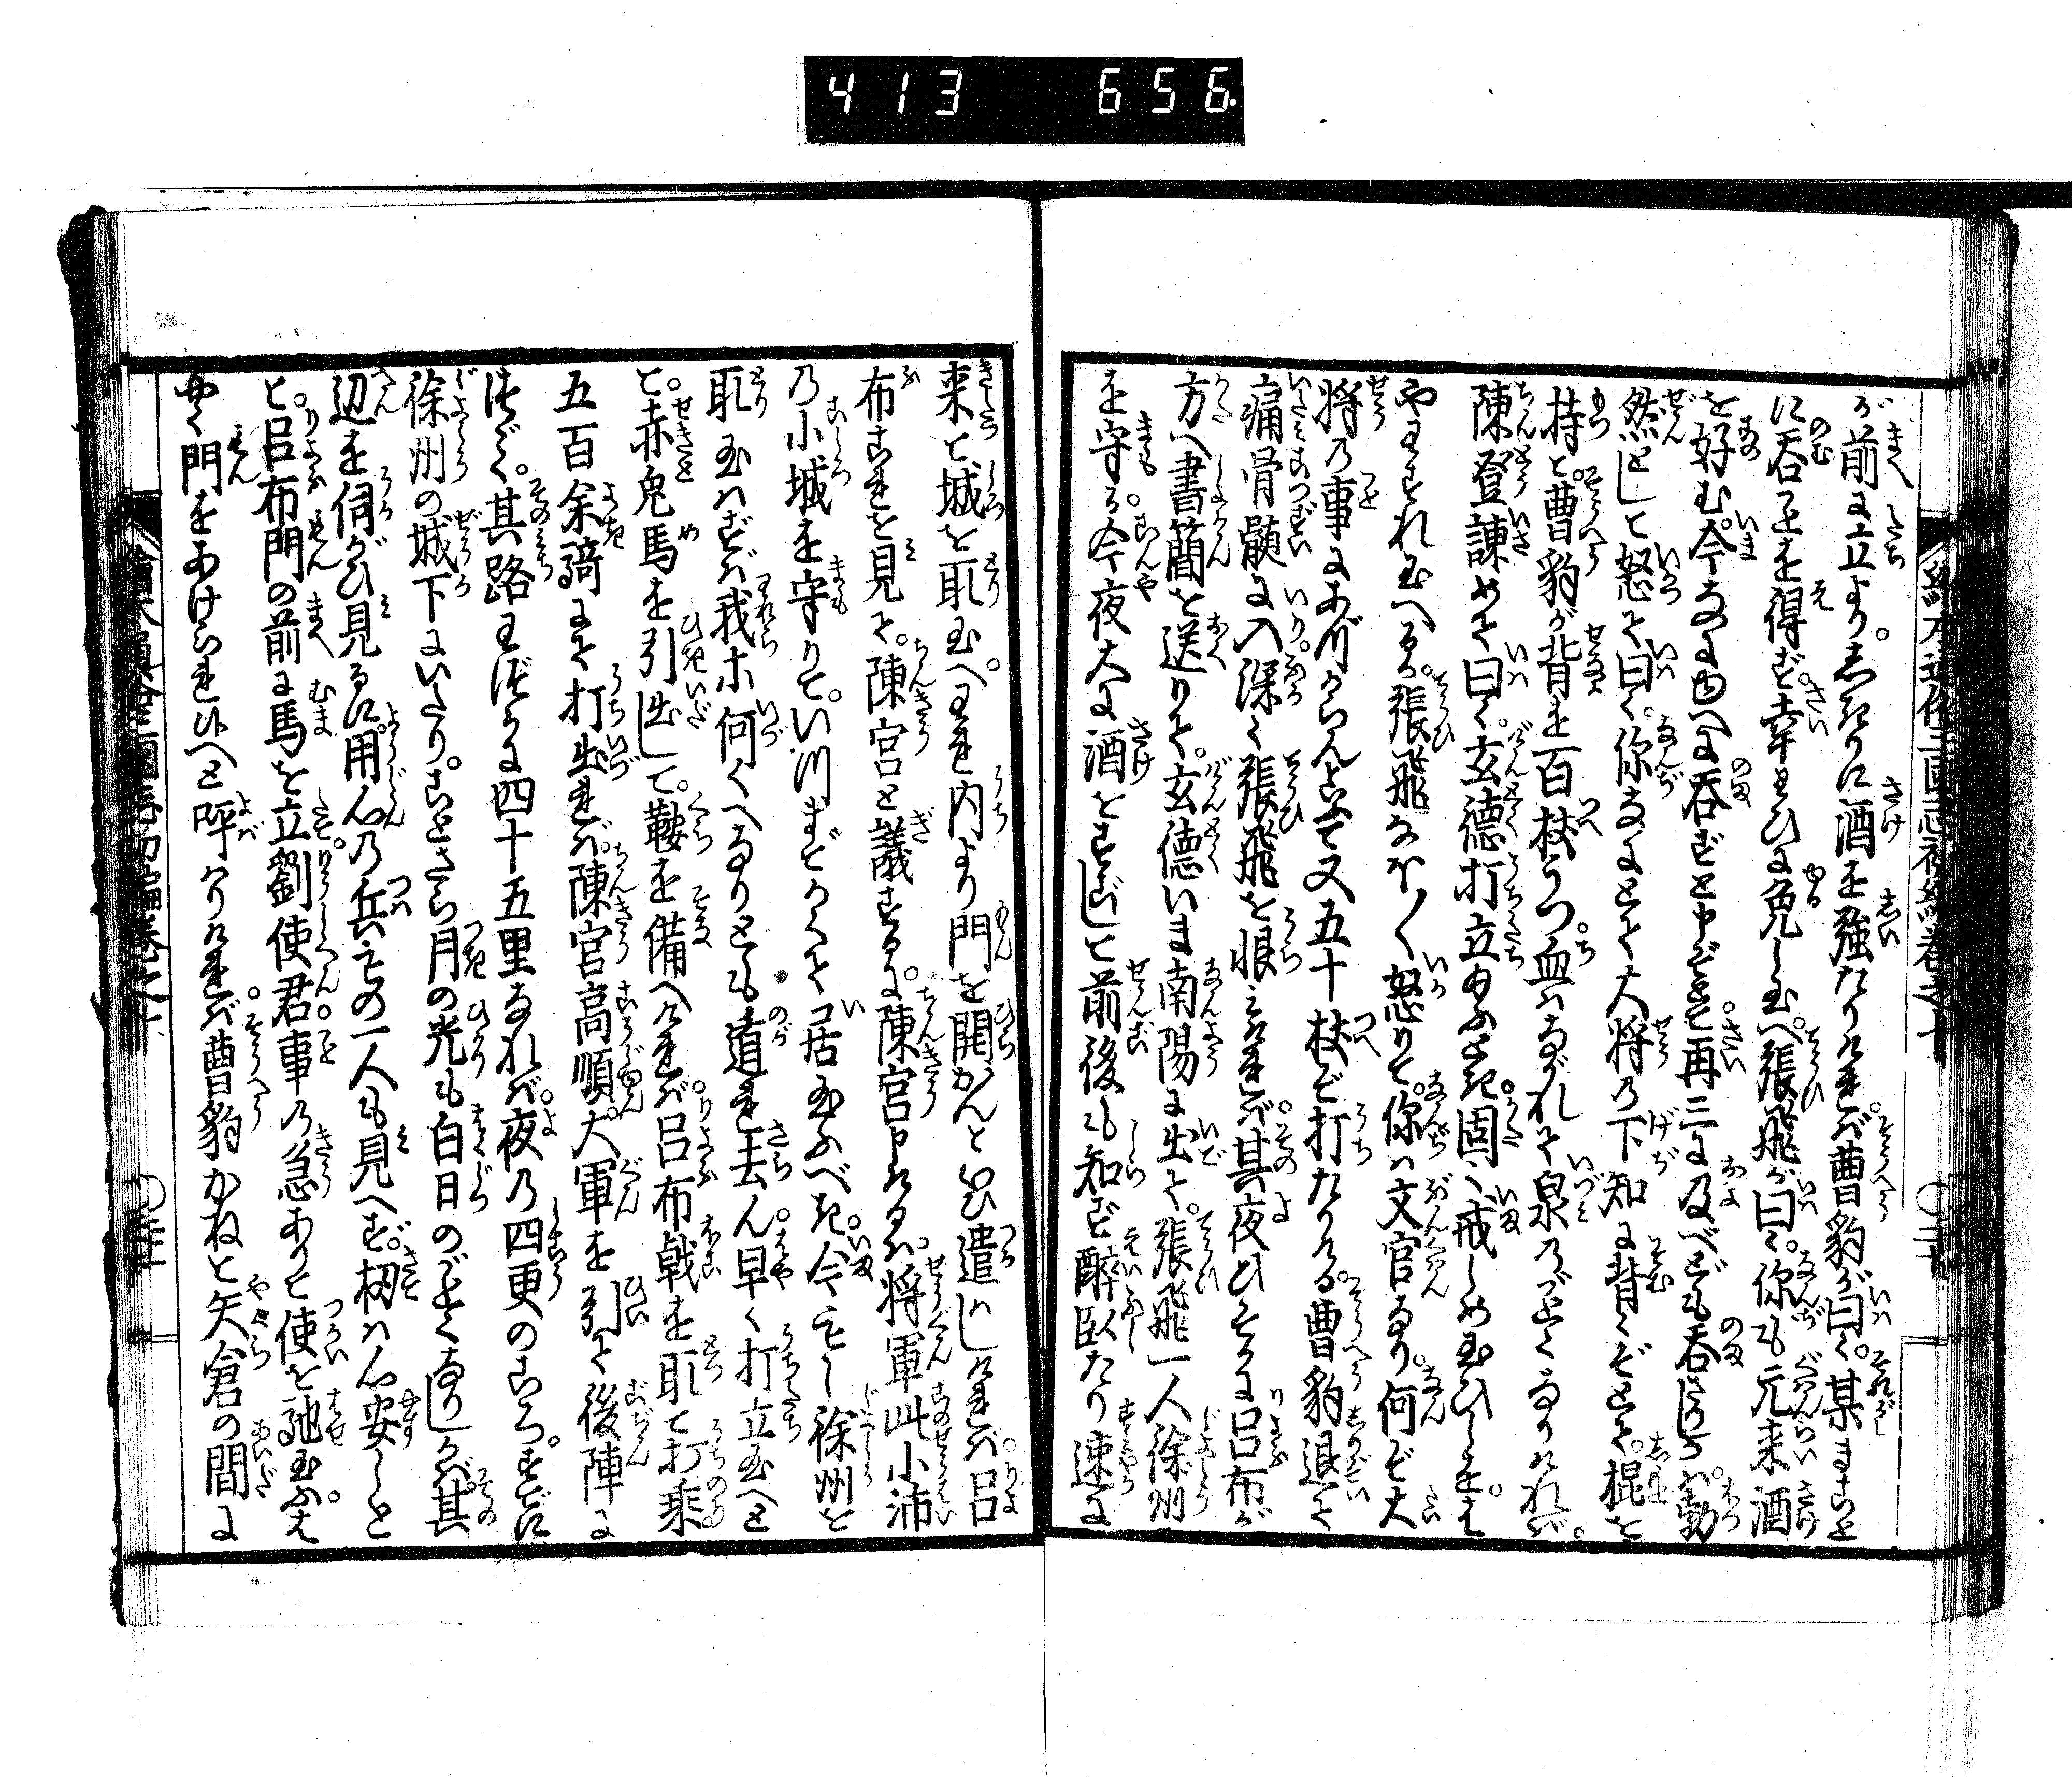 413 656.
が前に立よりしきりに酒を強たりければ曹豹が曰く某まこと
に呑ことを得ず幸ひに免し玉へ張飛が曰く你も元来酒
を好む今なにゆへに呑ずと申ぞとて再三に及べども呑ざりしが勃
然として怒て曰く你なにとて大将の下知に背くぞとて棍を
持て曹豹が背を百杖うつ血はながれて泉のごとくなりければ
陳登諫めて曰く玄徳打立玉ふとき固く戒しめ玉ひしをは
やわすれ玉へるか張飛なを〱怒りて你は文官なり何ぞ大
将の事にあづからんとて又五十杖ぞ打たりける曹豹退て
痛骨髄に入深く張飛を恨みければ其夜ひそかに呂布が
方へ書簡を送りて玄徳いま南陽に出て張飛一人徐州
を守る今夜大に酒をすごして前後も知ず酔臥たり速に
来て城を取玉へわれ内より門を開かんといひ遣はしければ呂
布これを見て陳宮と議するに陳宮申けるは将軍此小沛
の小城を守りていつまでかくて居玉ふべき今もし徐州を
取玉はずば我等何くへなりとも遁れ去ん早く打立玉へと
て赤兎馬を引出して鞍を備へければ呂布戟を取て打乗
五百余騎にて打出れば陳宮高順大軍を引て後陣に
つゞく其路わづかに四十五里なれば夜の四更のころすでに
徐州の城下にいたりことさら月の光も白日のごとくなりしが其
辺を伺がひ見るに用心の兵もの一人も見へず扨は心安しと
て呂布門の前に馬を立劉使君事の急ありて使を馳玉ふは
やく門をあけられ候へと呼はりければ曹豹かねて矢倉の間に